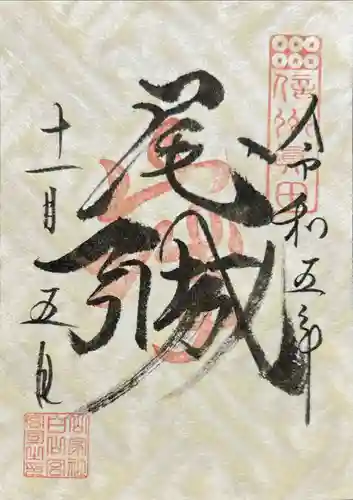 信州真田
令和五年
尾
引城
十一月
五日